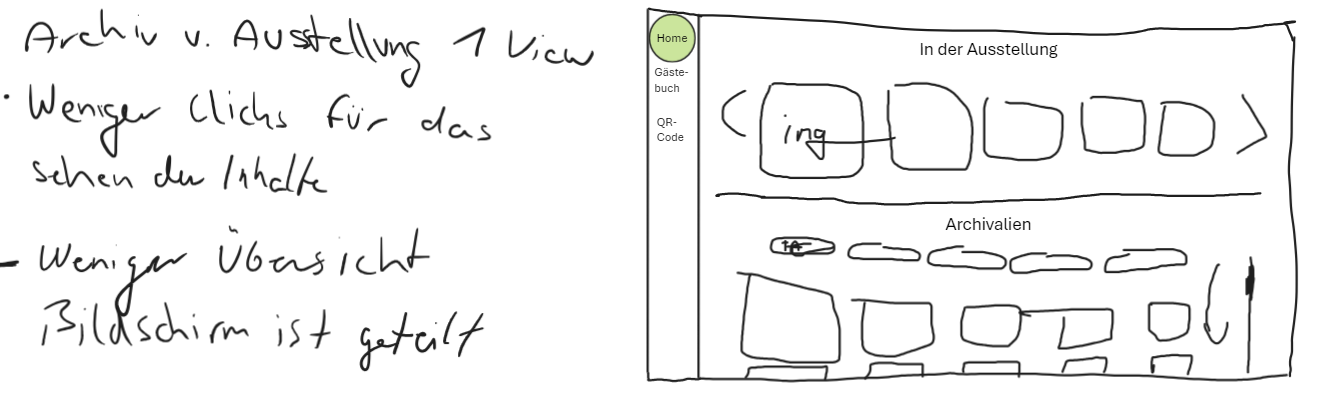 Archiv v. Ausstellung 1 View
· Weniger Clicks für das
sehen der Inhalte
- Weniger Übersicht
Bildschirm ist geteilt
Home
Gäste-
buch
QR-
Code
In der Ausstellung
img
Archivalien